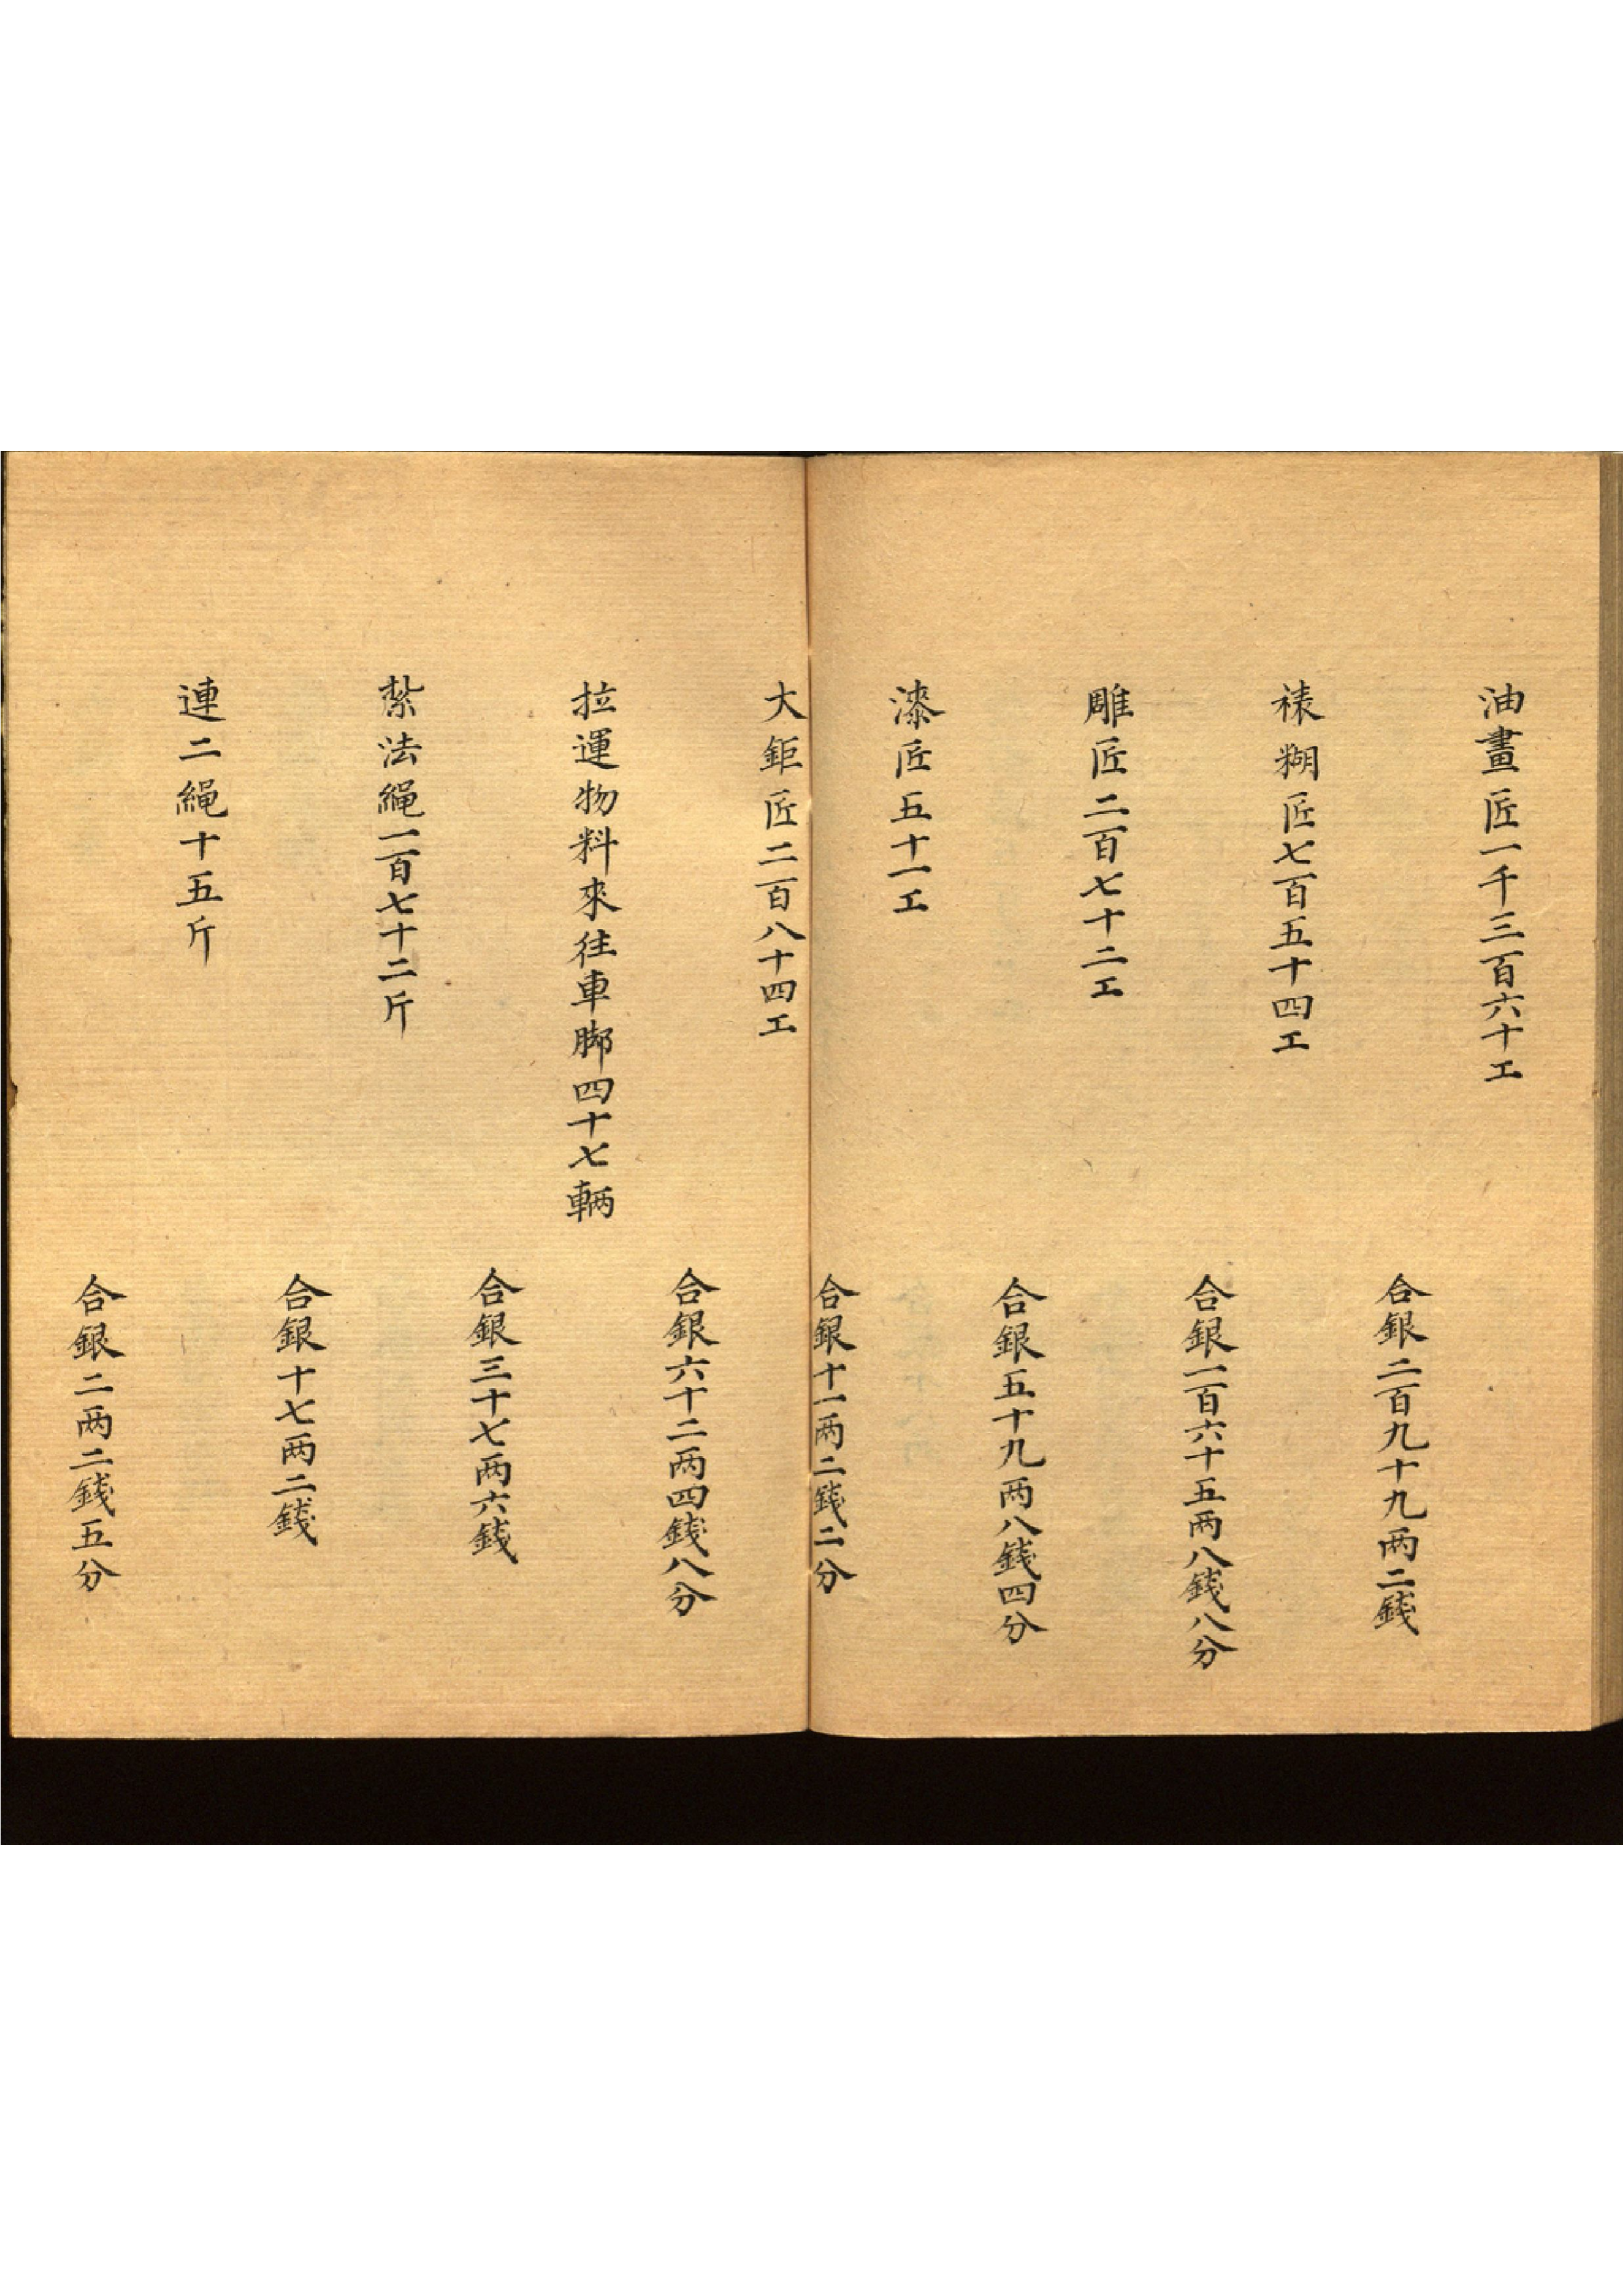 油畫匠一千三百六十工
合銀二百九十九两二錢
裱糊匠七百五十四工
合銀一百六十五两八錢八分
雕匠二百七十二工
合銀五十九两八錢四分
漆匠五十一工
合銀十一两二錢二分
大鉅匠二百八十四工
合銀六十二两四錢八分
拉運物料來往車脚四十七輛
合銀三十七两六錢
紮法繩一百七十二斤
合銀十七两二錢
連二繩十五斤
合銀二两二錢五分